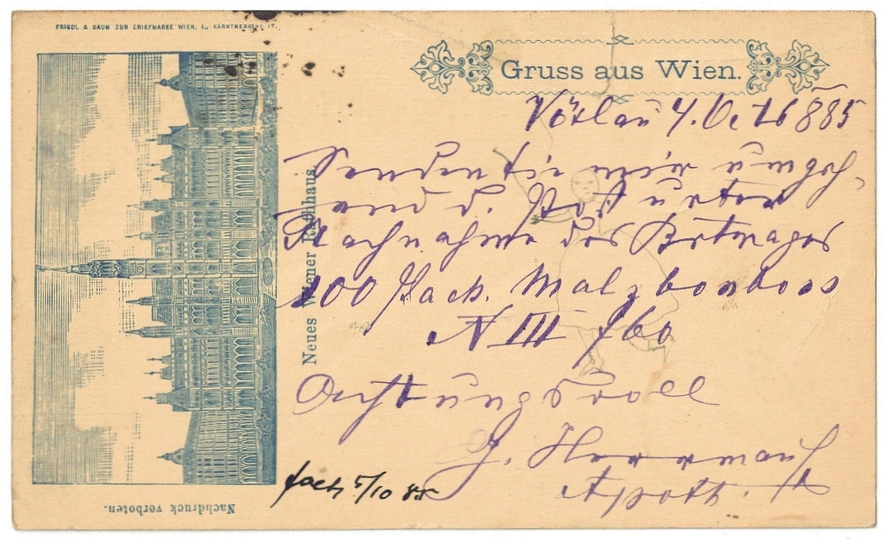 FRIEDL & BAUM ZUR BRIEFMARKE WIEN, I., KÄRNTNERRING 17.
Gruss aus Wien.
Vöslau 4. Oct 885
Senden Sie mir umgeh-
end d. Post unter
Nachnahme des Betrages
100 Pack. Malzbonbons
N III f 60
Achtungsvoll
J. Herrmann
Apoth.
5/10 85
Neues Wiener Rathhaus.
Nachdruck verboten.